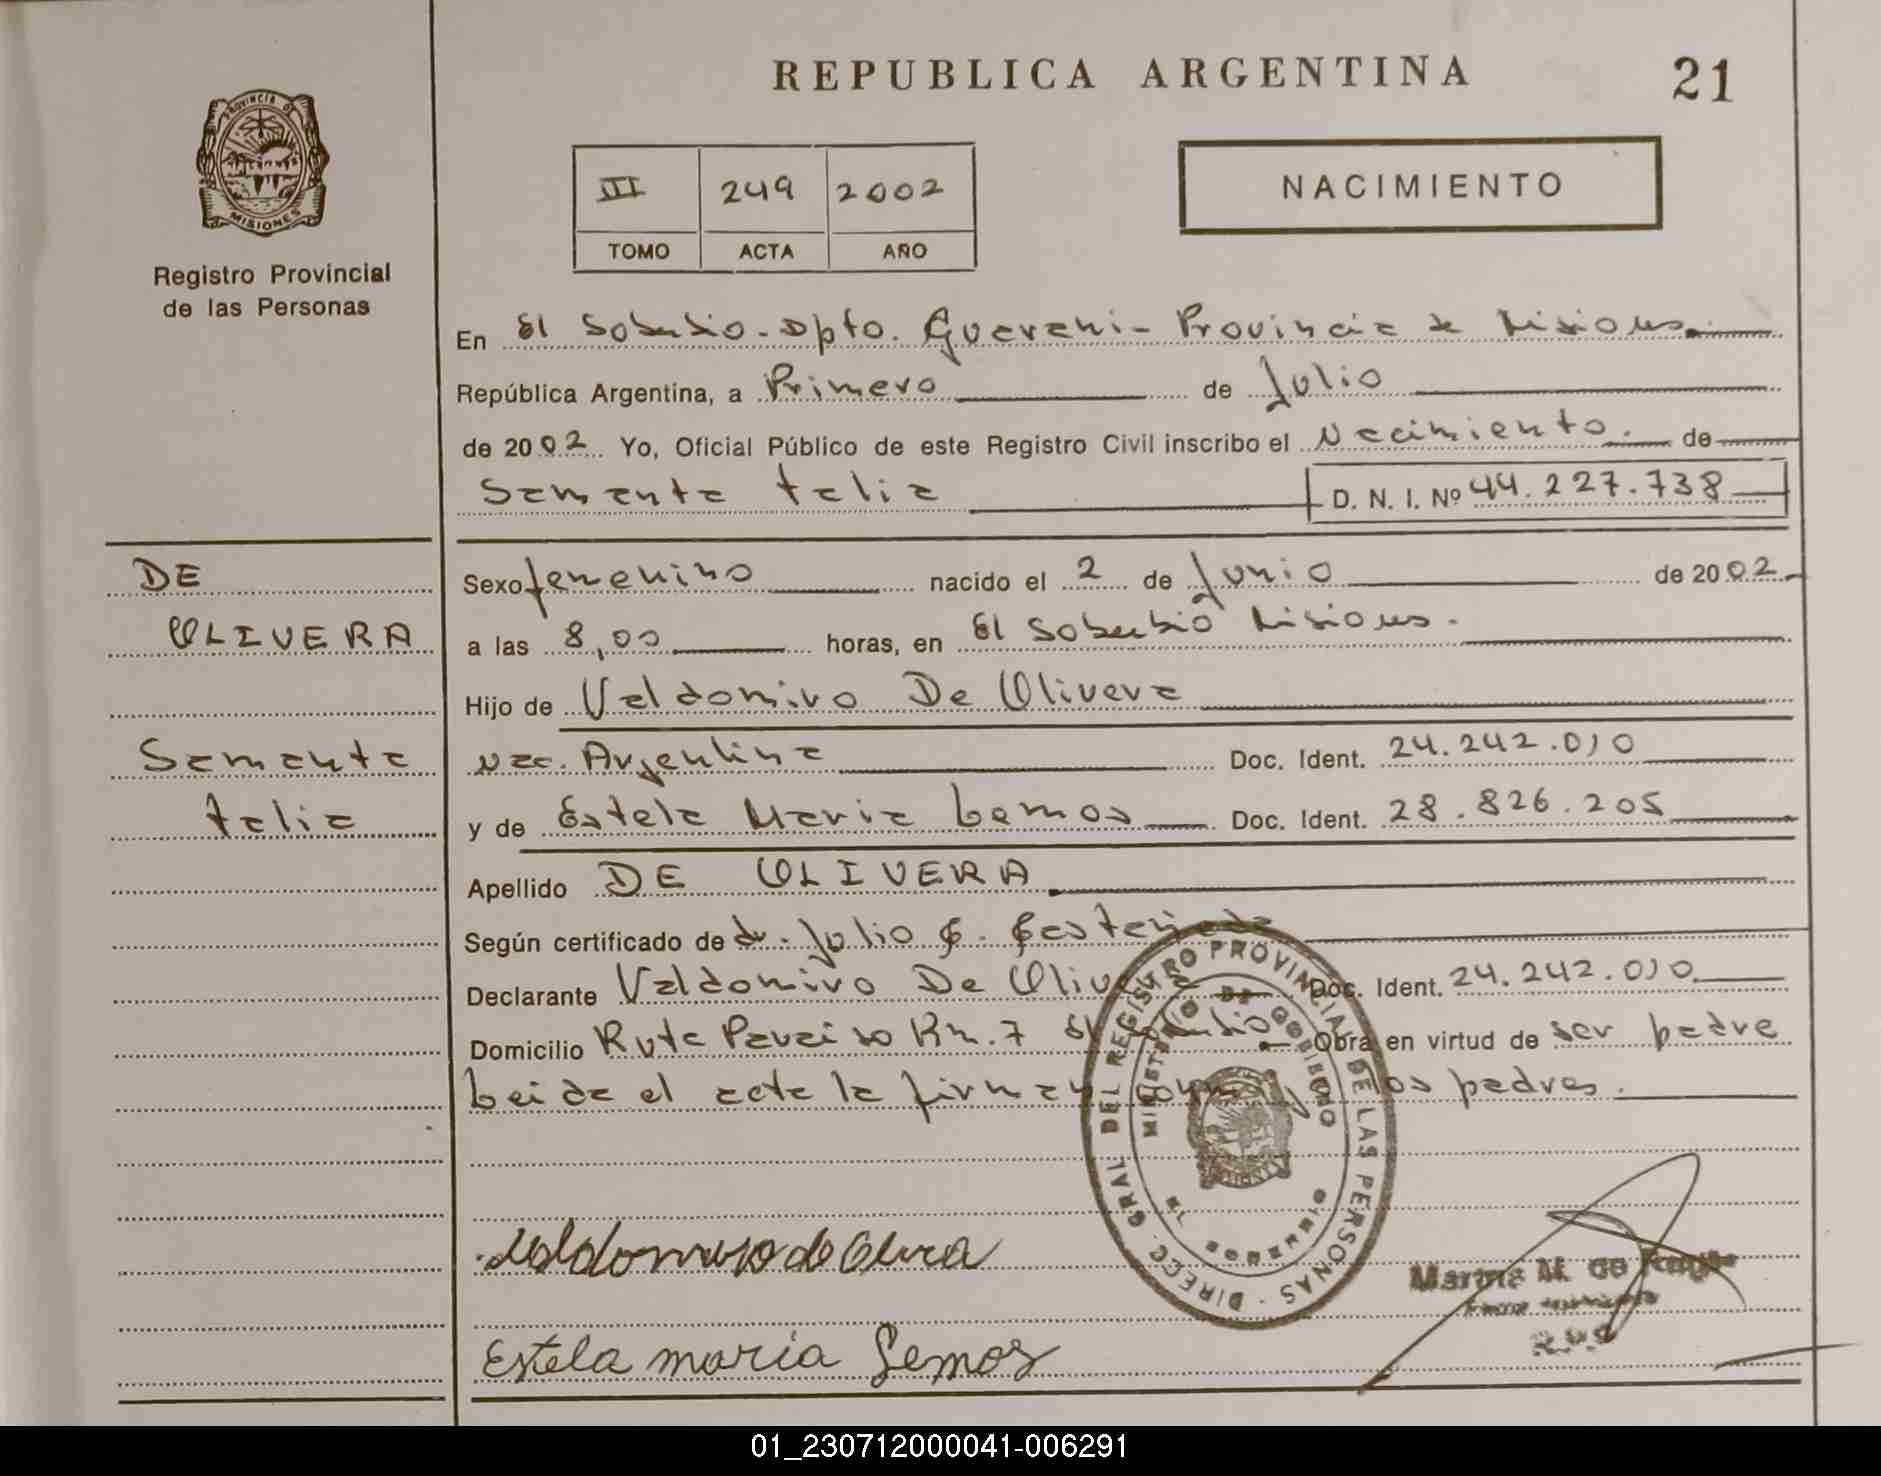 REPUBLICA ARGENTINA
21
PROVINCIA DE
MISIONES
Registro Provincial
de las Personas
III 249 2002
TOMO ACTA AÑO
NACIMIENTO
En El Soberbio - Dpto. Guarani - Provincia de Misiones.
República Argentina, a Primero de Julio
de 2002 Yo, Oficial Público de este Registro Civil inscribo el Nacimiento. de
Samanta Talia
D. N. I. Nº 44.227.738
DE
OLIVERA
Samanta
Talia
Sexo femenino nacido el 2 de Junio de 2002
a las 8,00 horas, en El Soberbio Misiones.
Hijo de Valdomiro De Olivera
Nac. Argentina Doc. Ident. 24.242.010
y de Estela Maria Lemos Doc. Ident. 28.826.205
Apellido DE OLIVERA
Según certificado de dr. Julio
Declarante Valdomiro De Olivera Doc. Ident. 24.242.010
Domicilio Ruta Paraiso Km. 7 El Soberbio Obra en virtud de ser padre
Leida el acta la firman los padres.
DIRECC. GRAL. DEL REGISTRO PROVINCIAL DE LAS PERSONAS
MINISTERIO DE GOBIERNO
MISIONES
Valdomiro de Olivera
Marina M. de
Estela maria Lemos
01_230712000041-006291